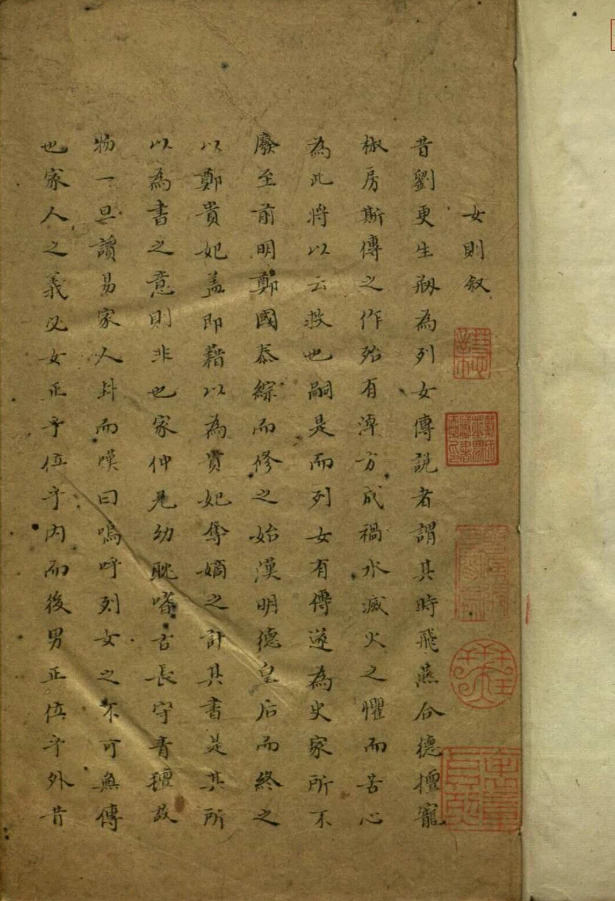 女則叙
昔劉更生剏為列女傳說者謂其時飛燕合德擅寵
椒房斯傳之作殆有漳方成禍水滅火之懼而苦心
為此將以云救也嗣是而列女有傳遂為史家所不
廢至前明鄭國泰綜而修之始漢明德皇后而終之
以鄭貴妃盖即藉以為貴妃奪嫡之計其書是其所
以為書之意則非也家仲兄幼耽嗜古長守青氊故
物一旦讀易家人爻而嘆曰嗚呼列女之不可無傳
也家人之義必女正乎位乎内而後男正位乎外昔